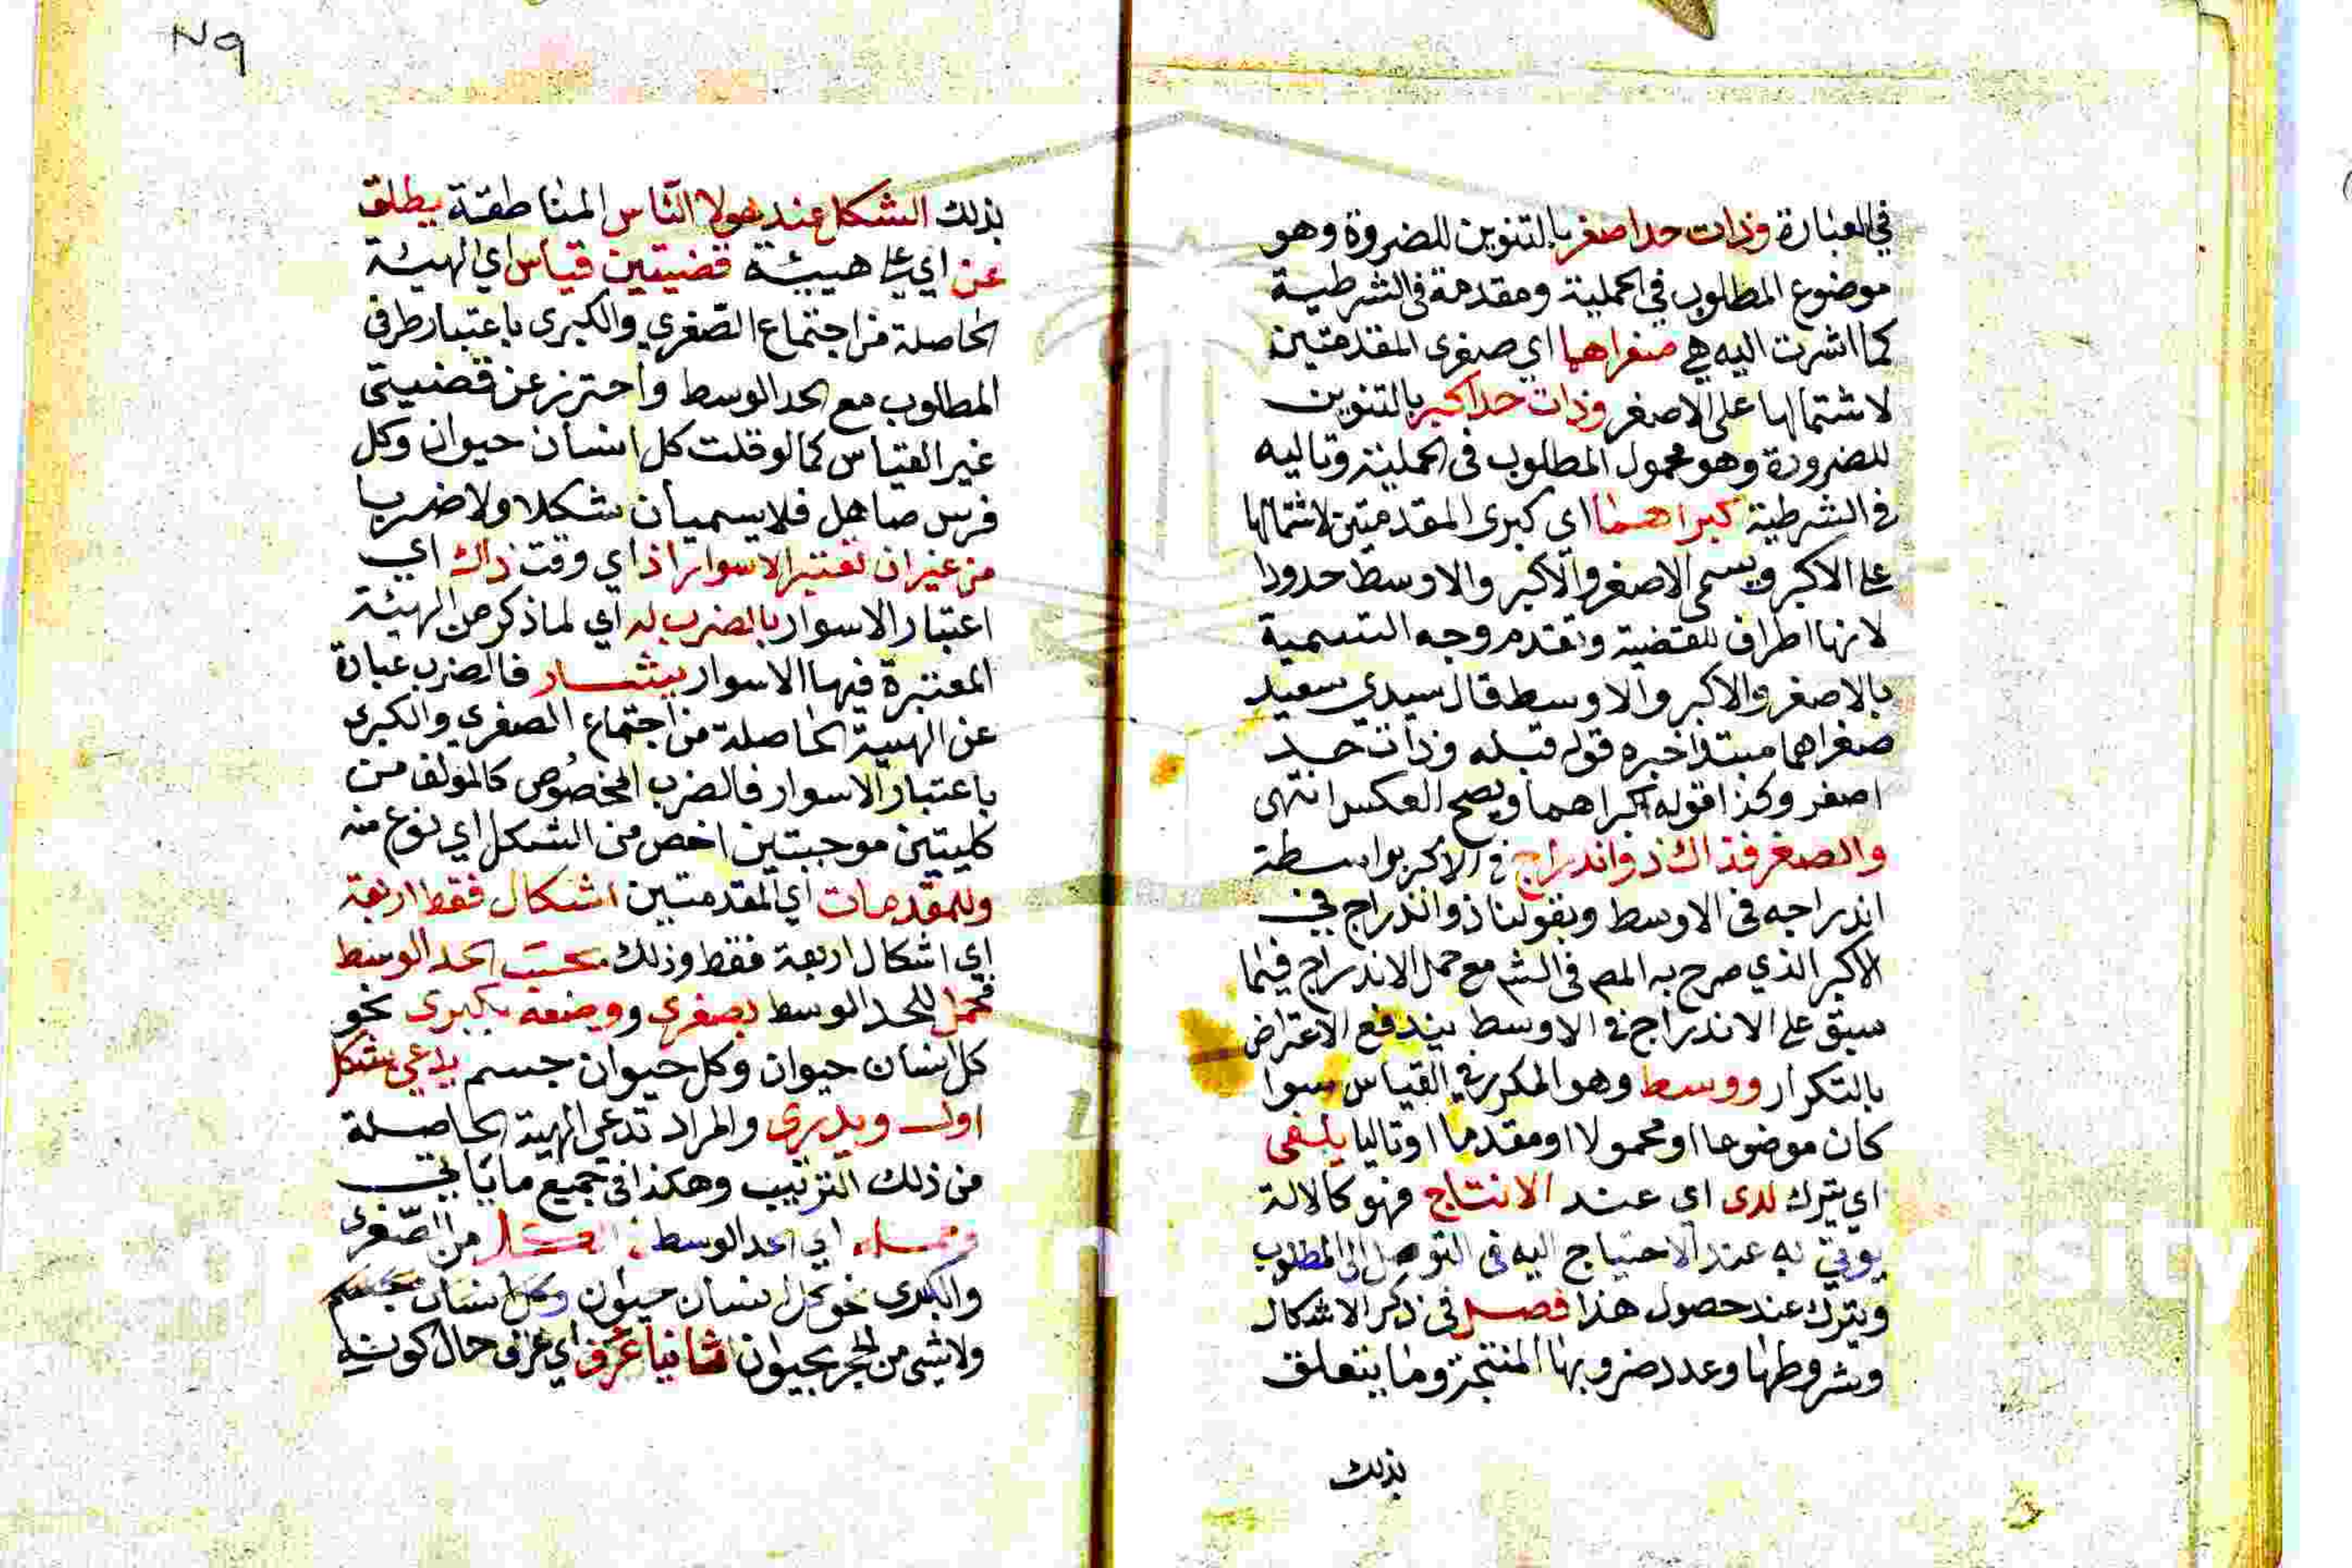 في العبارة وذات حد اصغر بالتنوين للضرورة وهو
موضوع المطلوب في الحملية ومقدمة في الشرطية
كما اشرت اليه هي صغراهما اي صغرى المقدمتين
لاشتمالها على الاصغر وذات حد اكبر بالتنوين
للضرورة وهو محمول المطلوب في الحملية وتاليه
في الشرطية كبراهما اي كبرى المقدمتين لاشتمالها
على الاكبر ويسمى الاصغر والاكبر والاوسط حدودا
لانها اطراف للقضية وتقدم وجه التسمية
بالاصغر والاكبر والاوسط قال سيدي سعيد
صغراهما مبتدا خبره قوله قبله وذات حد
اصغر وكذا قوله كبراهما ويصح العكس انتهى
واصغر فذاك ذو اندراج في الاكبر بواسطة
اندراجه في الاوسط وبقولنا ذو اندراج في
الاكبر الذي صرح به المص في الشم مع حمل الاندراج فيما
سبق على الاندراج في الاوسط يندفع الاعتراض
بالتكرار ووسط وهو المكرر في القياس سوا
كان موضوعا او محمولا او مقدما او تاليا يلغى
اي يترك لدى اي عند الانتاج فهو كالالة
يوتى به عند الاحتياج اليه في التوصل الى المطلوب
ويترك عند حصول هذا فصل في ذكر الاشكال
وشروطها وعدد ضروبها المنتجة وما يتعلق
بذلك
٢٩
بذلك الشكل عند هولا الناس المناطقة يطلق
عن اي على هيئة قضيتين قياس اي الهيئة
الحاصلة من اجتماع الصغرى والكبرى باعتبار طرفي
المطلوب مع الحد الوسط واحترز عن قضيتي
غير القياس كما لو قلت كل انسان حيوان وكل
فرس صاهل فلا يسميان شكلا ولا ضربا
من غير ان تعتبر الاسوار اذ اي وقت ذاك اي
اعتبار الاسوار بالضرب له اي لما ذكر من الهيئة
المعتبرة فيها الاسوار يشار فالضرب عبارة
عن الهيية الحاصلة من اجتماع الصغرى والكبرى
باعتبار الاسوار فالضرب المخصوص كالمولف من
كليتين موجبتين اخص من الشكل اي نوع منه
وللمقدمات اي المقدمتين اشكال فقط اربعة
اي اشكال اربعة فقط وذلك بحسب الحد الوسط
فحمل للحد الوسط بصغرى ووضعه بكبرى نحو
كل انسان حيوان وكل حيوان جسم يدعى بشكل
اول ويدرى والمراد تدعى الهيية الحاصلة
من ذلك الترتيب وهكذا في جميع ما ياتي
وحمله اي الحد الوسط في الكل من الصغرى
والكبرى نحو كل انسان حيوان
ولا شي من الحجر بحيوان ثانيا عرف اي عرف حال كونه